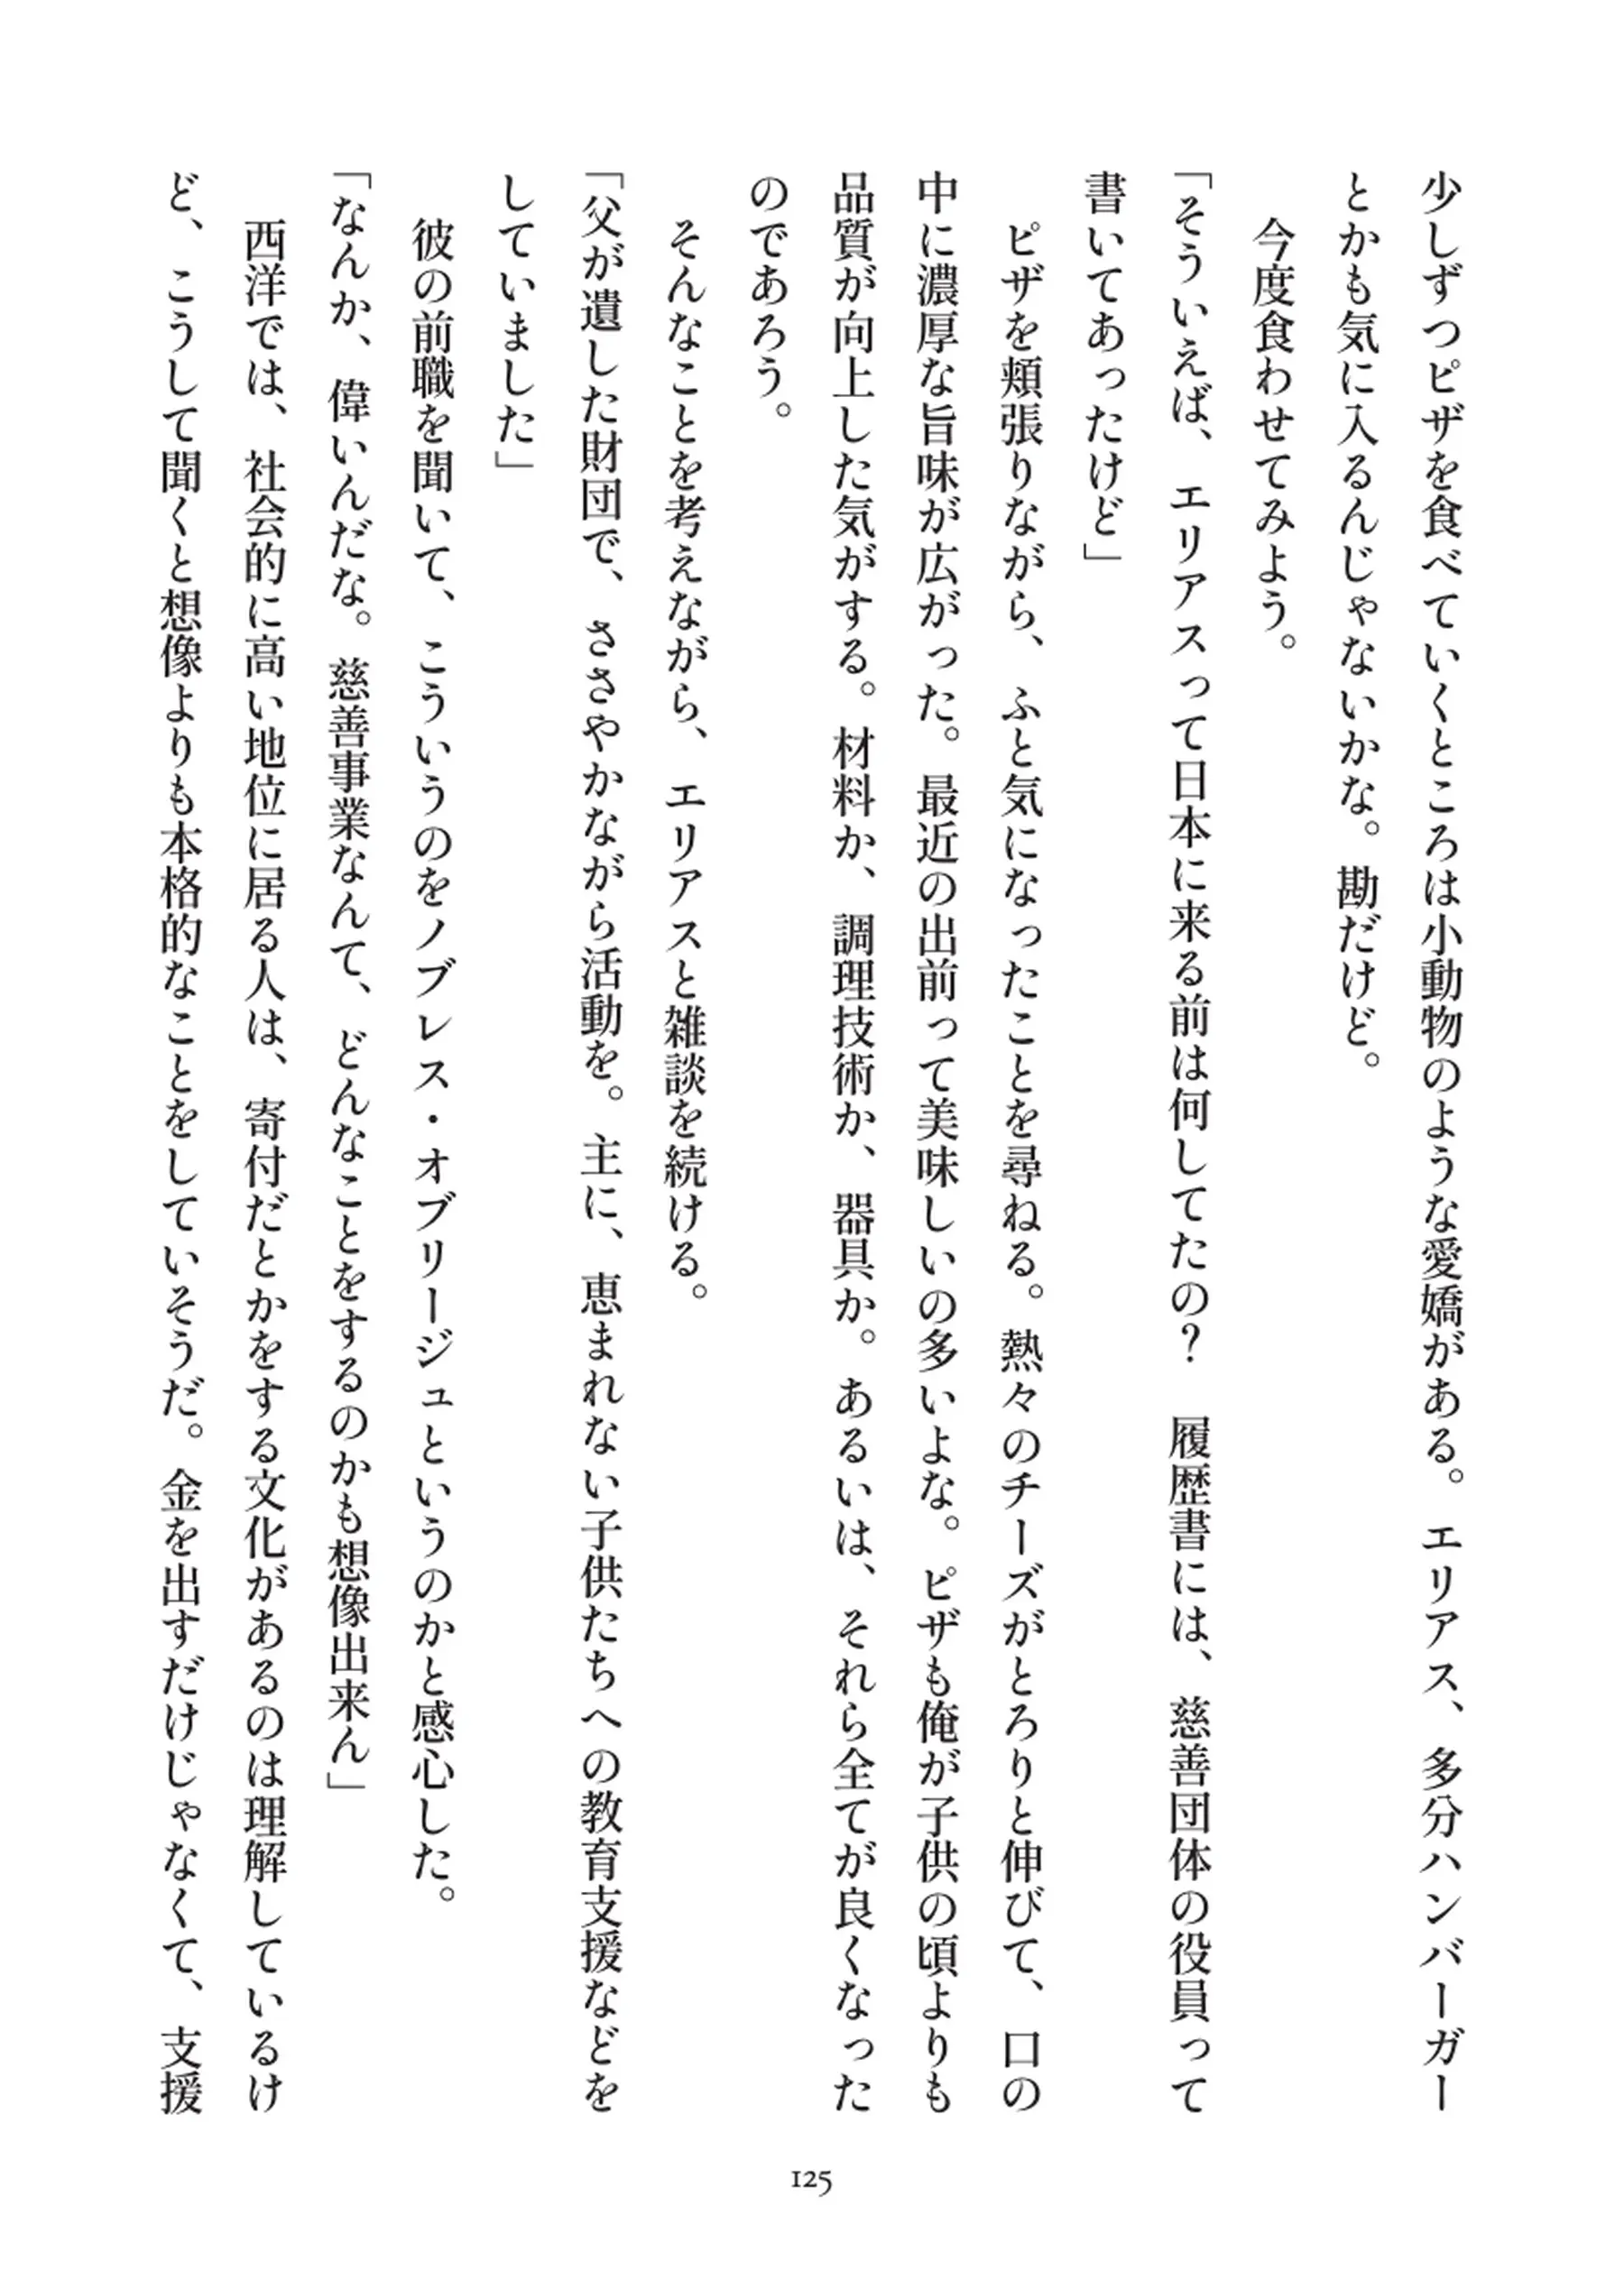 少しずつピザを食べていくところは小動物のような愛嬌がある。エリアス、多分ハンバーガー
とかも気に入るんじゃないかな。勘だけど。
　今度食わせてみよう。
「そういえば、エリアスって日本に来る前は何してたの？　履歴書には、慈善団体の役員って
書いてあったけど」
　ピザを頬張りながら、ふと気になったことを尋ねる。熱々のチーズがとろりと伸びて、口の
中に濃厚な旨味が広がった。最近の出前って美味しいの多いよな。ピザも俺が子供の頃よりも
品質が向上した気がする。材料か、調理技術か、器具か。あるいは、それら全てが良くなった
のであろう。
　そんなことを考えながら、エリアスと雑談を続ける。
「父が遺した財団で、ささやかながら活動を。主に、恵まれない子供たちへの教育支援などを
していました」
　彼の前職を聞いて、こういうのをノブレス・オブリージュというのかと感心した。
「なんか、偉いんだな。慈善事業なんて、どんなことをするのかも想像出来ん」
　西洋では、社会的に高い地位に居る人は、寄付だとかをする文化があるのは理解しているけ
ど、こうして聞くと想像よりも本格的なことをしていそうだ。金を出すだけじゃなくて、支援
125